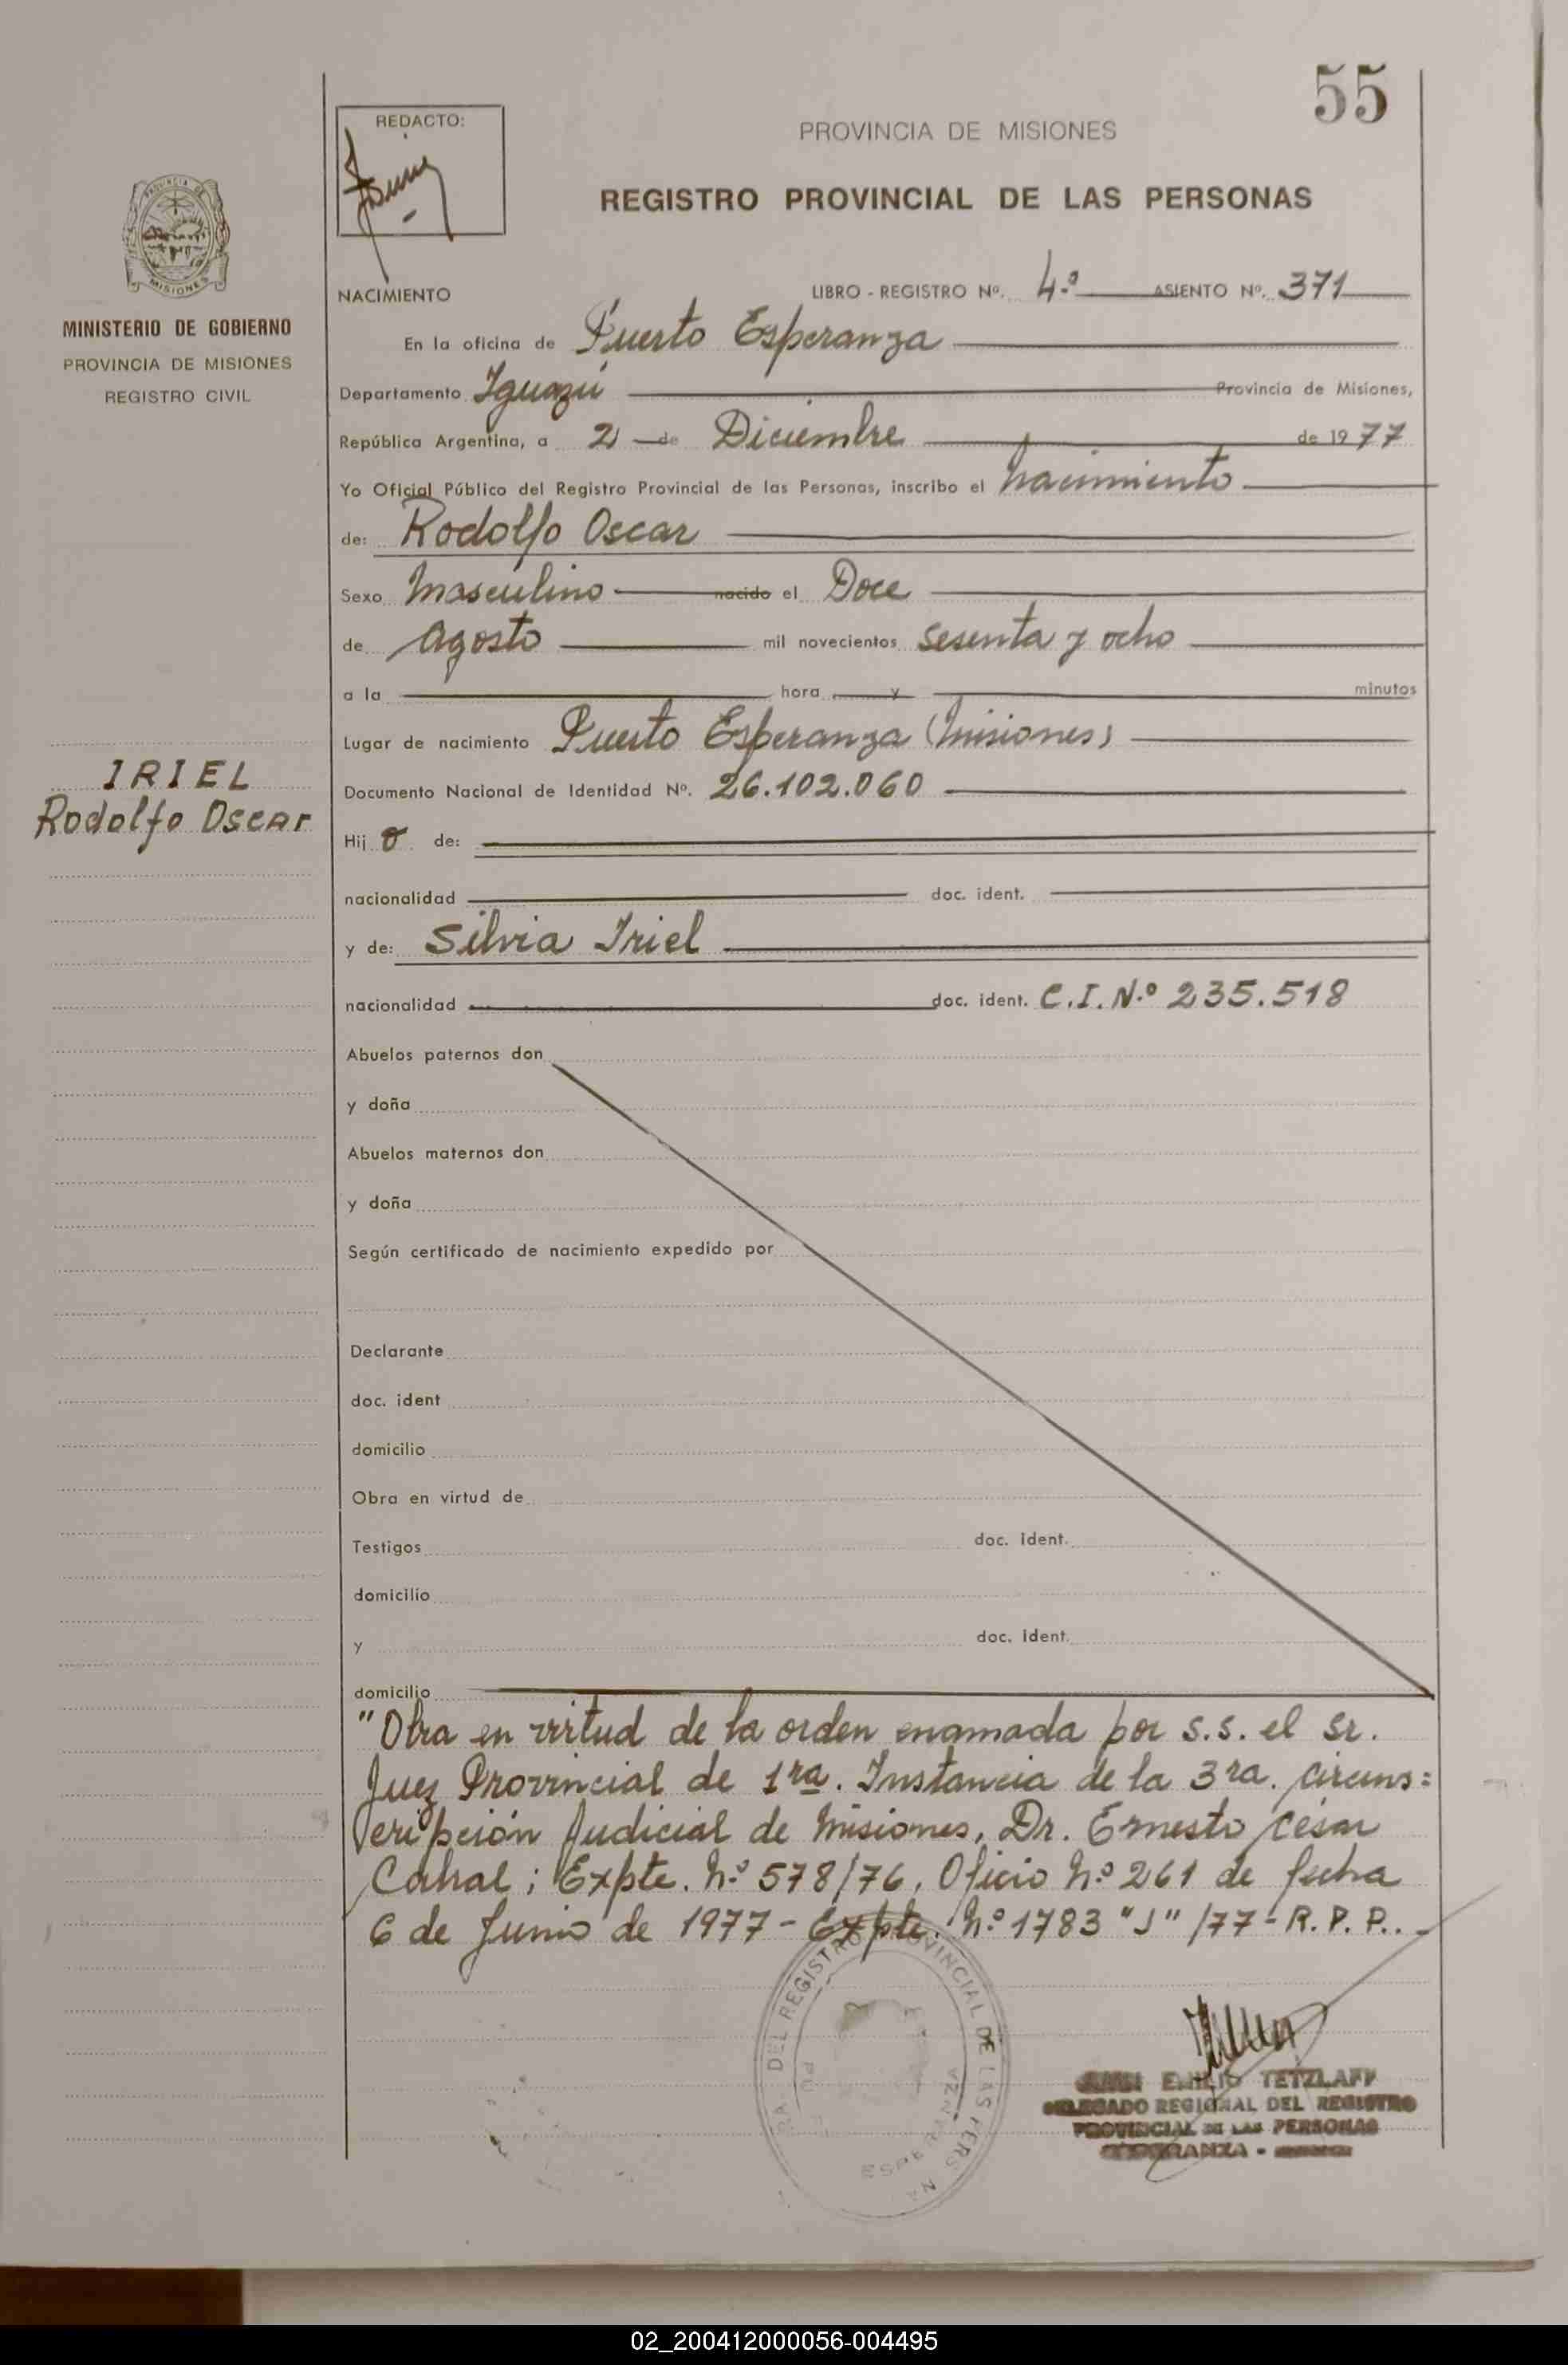 55
REDACTO:
PROVINCIA DE MISIONES
REGISTRO PROVINCIAL DE LAS PERSONAS
PROVINCIA DE
MISIONES
MINISTERIO DE GOBIERNO
PROVINCIA DE MISIONES
REGISTRO CIVIL
NACIMIENTO LIBRO - REGISTRO Nº. 4.º ASIENTO Nº. 371
En la oficina de Puerto Esperanza
Departamento Iguazú Provincia de Misiones,
República Argentina, a 2 de Diciembre de 1977
Yo Oficial Público del Registro Provincial de las Personas, inscribo el nacimiento
de: Rodolfo Oscar
Sexo Masculino nacido el Doce
de Agosto mil novecientos sesenta y ocho
a la hora y minutos
Lugar de nacimiento Puerto Esperanza (Misiones)
IRIEL
Rodolfo Oscar
Documento Nacional de Identidad Nº. 26.102.060
Hij o de:
nacionalidad doc. ident.
y de: Silvia Iriel
nacionalidad doc. ident. C.I.N.º 235.518
Abuelos paternos don
y doña
Abuelos maternos don
y doña
Según certificado de nacimiento expedido por
Declarante
doc. ident
domicilio
Obra en virtud de
Testigos doc. ident.
domicilio
y doc. ident.
domicilio
"Obra en virtud de la orden enamada por s.s. el sr.
Juez Provincial de 1ra. Instancia de la 3ra. circuns=
cripción Judicial de Misiones, Dr. Ernesto César
Cabral; Expte. N.º 578/76, Oficio N.º 261 de fecha
6 de Junio de 1977 - Expte. N.º 1783 "J" /77 - R.P.P..-
DEL REGISTRO PROVINCIAL DE LAS
ESPERANZA
EMILIO TETZLAFF
DELEGADO REGIONAL DEL REGISTRO
PROVINCIAL DE LAS PERSONAS
ESPERANZA -
02_200412000056-004495